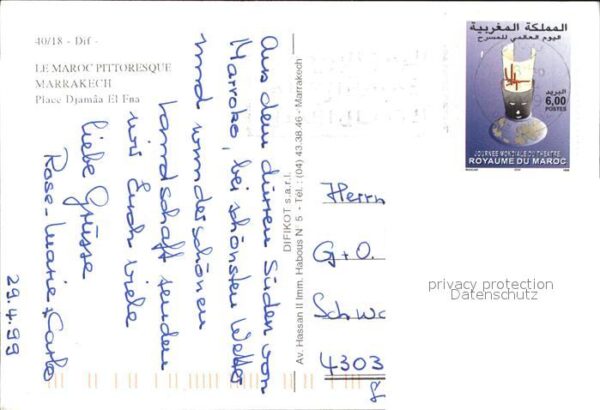 40/18 - Dif -
LE MAROC PITTORESQUE
MARRAKECH
Place Djamâa El Fna
Aus dem dürren Süden von
Marroko, bei schönstem Wetter
und wunderschönen
Landschaft senden
wir Euch viele
liebe Grüsse
Rose-Marie + Carlo
29.4.99
DIFIKOT s.a.r.l.
Av. Hassan II Imm. Habous N° 5 - Tél.: (04) 43.38.46 - Marrakech
المملكة المغربية
اليوم العالمي للمسرح
البريد
6,00
POSTES
JOURNEE MONDIALE DU THEATRE
ROYAUME DU MAROC
Herrn
G+O.
Schw
4303
privacy protection
Datenschutz